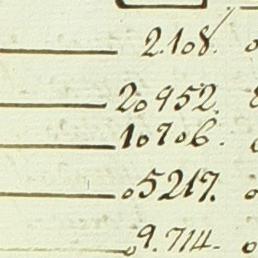 2.108.
20952.
10706.
05217.
09.714.